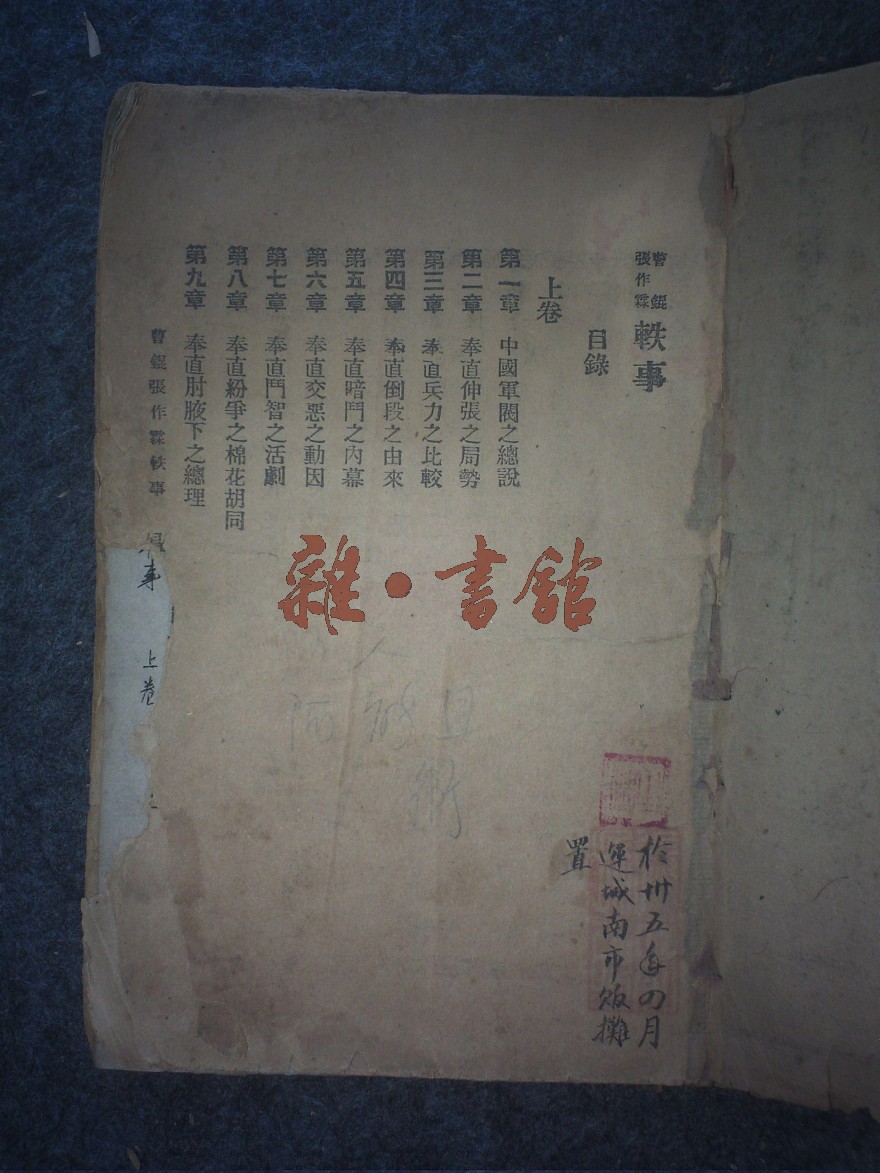 曹錕
張作霖
軼事
目錄
上卷
第一章 中國軍閥之總說
第二章 奉直伸張之局勢
第三章 奉直兵力之比較
第四章 奉直倒段之由來
第五章 奉直暗鬥之內幕
第六章 奉直交惡之動因
第七章 奉直鬥智之活劇
第八章 奉直紛爭之棉花胡同
第九章 奉直肘腋下之總理
曹錕張作霖軼事
事 上卷
雜·書館
於卅五年四月
運城南市販攤
置